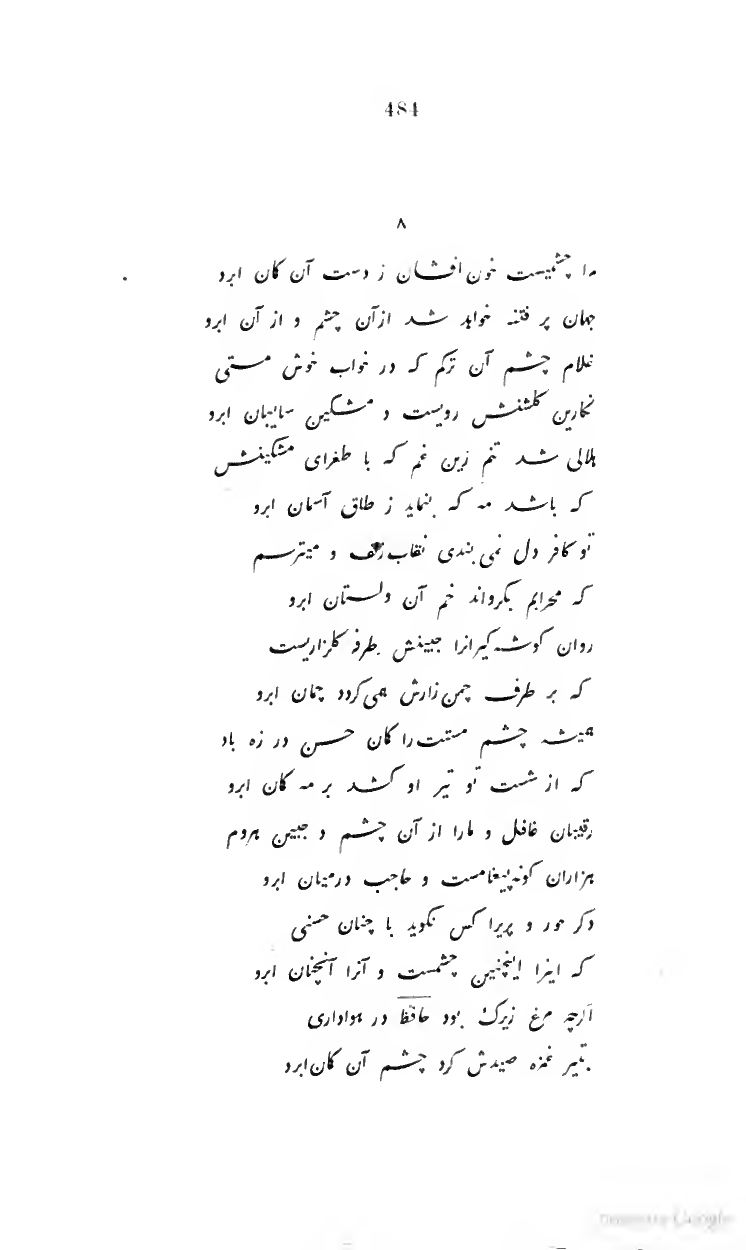 484
٨
مرا چشمیست خون افشان ز دست آن کمان ابرو
جهان پر فتنه خواهد شد ازآن چشم و از آن ابرو
غلام چشم آن ترکم که در خواب خوش مستی
نکارین کلشنش رویست و مشکین سایبان ابرو
هلالی شد تنم زین غم که با طغرای مشکینش
که باشد مه که بنماید ز طاق آسمان ابرو
تو کافر دل نمی بندی نقاب زلف و میترسم
که محرابم بکرداند خم آن دلستان ابرو
روان کوشه کیرانرا جبینش طرفه کلزاریست
که بر طرف چمن زارش همی کردد چمان ابرو
همیشه چشم مستت را کمان حسن در زه باد
که از شست تو تیر او کشد بر مه کمان ابرو
رقیبان غافل و مارا از آن چشم و جبین هردم
هزاران کونه پیغامست و حاجب درمیان ابرو
دکر حور و پریرا کس نکوید با چنان حسنی
که اینرا اینچنین چشمست و آنرا آنچنان ابرو
اکرچه مرغ زیرک بود حافظ در هواداری
بتیر غمزه صیدش کرد چشم آن کمان ابرو
Google